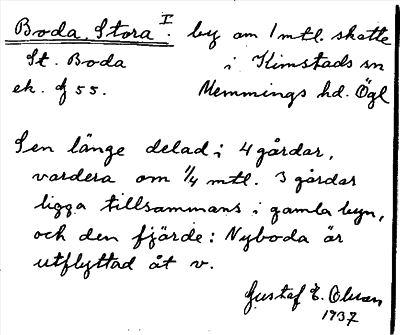 Boda, Stora I. by om 1 mtl. skatte
St. Boda i Kimstads sn
ek. bl 55. Memmings hd. Ögl
Sen länge delad i 4 gårdar,
vardera om 1/4 mtl. 3 gårdar
ligga tillsammans i gamla byn,
och den fjärde: Nyboda är
utflyttad åt v.
Gustaf E. Olsson
1937